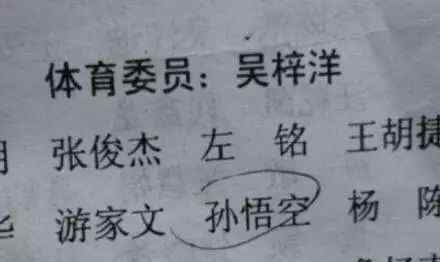 体育委员：吴梓洋
张俊杰 左 铭 王胡捷
游家文 孙悟空 杨 陈